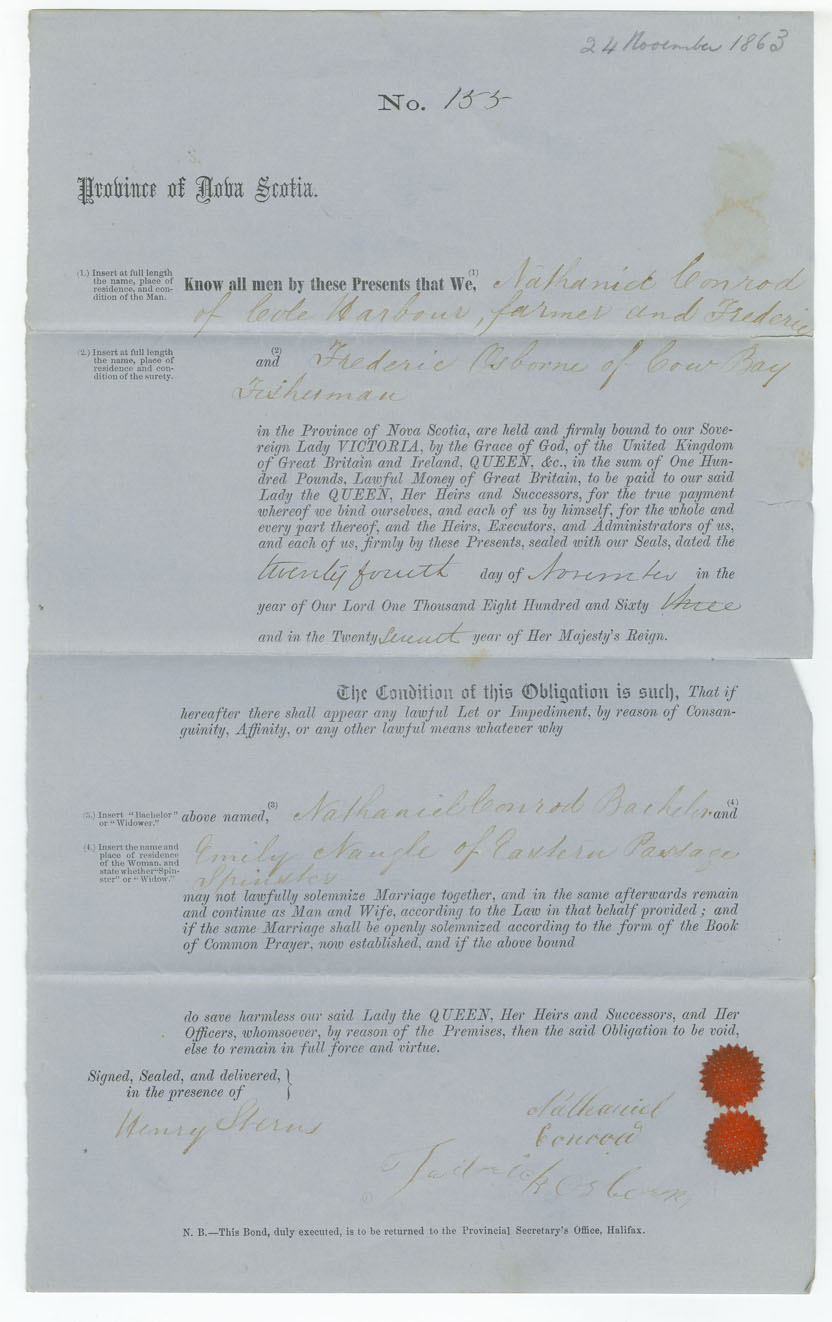 24 November 1863
No. 155
Province of Nova Scotia.
(1.) Insert at full length
the name, place of
residence, and con-
dition of the Man.
Know all men by these Presents that We, (1) Nathaniel Conrod
of Cole Harbour, farmer and Frederic
(2.) Insert at full length
the name, place of
residence and con-
dition of the surety.
and (2) Frederic Osborne of Cow Bay
Fisherman
in the Province of Nova Scotia, are held and firmly bound to our Sove-
reign Lady VICTORIA, by the Grace of God, of the United Kingdom
of Great Britain and Ireland, QUEEN, &c., in the sum of One Hun-
dred Pounds, Lawful Money of Great Britain, to be paid to our said
Lady the QUEEN, Her Heirs and Successors, for the true payment
whereof we bind ourselves, and each of us by himself, for the whole and
every part thereof, and the Heirs, Executors, and Administrators of us,
and each of us, firmly by these Presents, sealed with our Seals, dated the
twenty fourth day of November in the
year of Our Lord One Thousand Eight Hundred and Sixty three
and in the Twenty Sevent year of Her Majesty's Reign.
The Condition of this Obligation is such, That if
hereafter there shall appear any lawful Let or Impediment, by reason of Consan-
guinity, Affinity, or any other lawful means whatever why
(3.) Insert "Bachelor"
or "Widower."
above named, (3) Nathaniel Conrod Bachelor and (4)
(4.) Insert the name and
place of residence
of the Woman, and
state whether "Spin-
ster" or "Widow."
Emily Naugle of Eastern Passage
Spinster
may not lawfully solemnize Marriage together, and in the same afterwards remain
and continue as Man and Wife, according to the Law in that behalf provided; and
if the same Marriage shall be openly solemnized according to the form of the Book
of Common Prayer, now established, and if the above bound
do save harmless our said Lady the QUEEN, Her Heirs and Successors, and Her
Officers, whomsoever, by reason of the Premises, then the said Obligation to be void,
else to remain in full force and virtue.
Signed, Sealed, and delivered,
in the presence of
Henry Sterns
Nathaniel
Conrod
Osborn
N. B.—This Bond, duly executed, is to be returned to the Provincial Secretary's Office, Halifax.